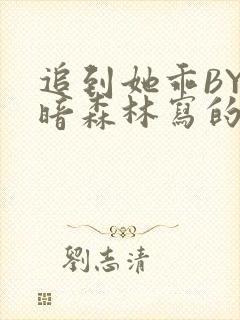 追到她乖BY
暗森林寫的
劉志清